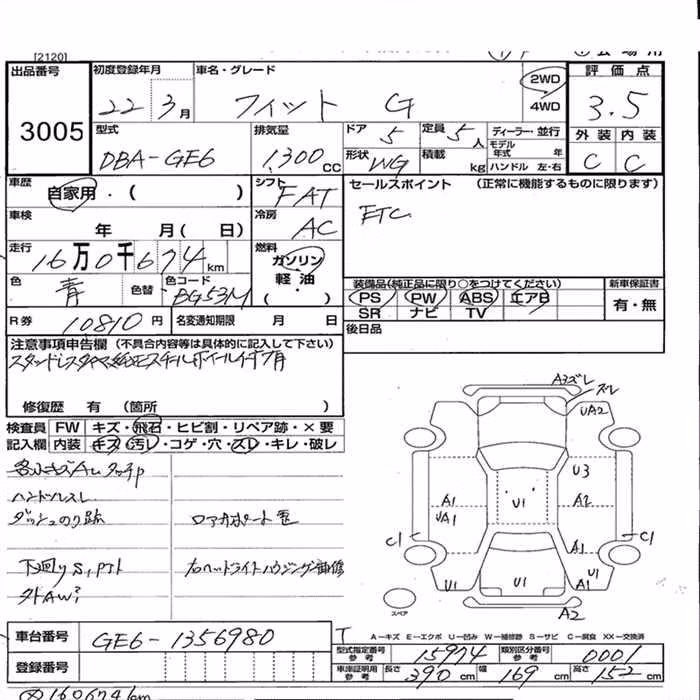 [2120]
出品番号 3005
初度登録年月 22 3月
車名・グレード フィット G
2WD 4WD
評価点 3.5
型式 DBA-GE6
排気量 1300cc
ドア 5
定員 5人
ディーラー・並行
モデル年式 年
形状 WG
積載 kg
ハンドル 左・右
外装 C
内装 C
車歴 自家用・( )
シフト FAT
セールスポイント (正常に機能するものに限ります)
ETC
車検 年 月(日)
冷房 AC
走行 16万0千674km
燃料 ガソリン 軽油 (・)
色 青
色替
色コード BG53M
装備品(純正品に限り○をつけてください)
PS PW ABS エアB
SR ナビ TV
新車保証書 有・無
R券 10810円
名変通知期限 月 日
後日品
注意事項申告欄 (不具合内容等は具体的に記入して下さい)
修復歴 有 (箇所 )
検査員記入欄
FW キズ・飛石・ヒビ割・リペア跡・×要
内装 キズ・汚レ・コゲ・穴・スレ・キレ・破レ
ハンドルスレ
ダッシュのり跡
右ヘッドライトハウジング補修
A3ズレ
ズレ
UA2
U3
A1
UA1
U1
A2
C1
C1
A1
U1
A1
U1
U1
A2
スペア
A-キズ E-エクボ U-凹み W-補修跡 S-サビ C-腐食 XX-交換済
車台番号 GE6-1356980
型式指定番号参考 15974
類別区分番号参考 0001
登録番号
車庫証明用参考 長さ 390cm 幅 169cm 高さ 152cm
160674km